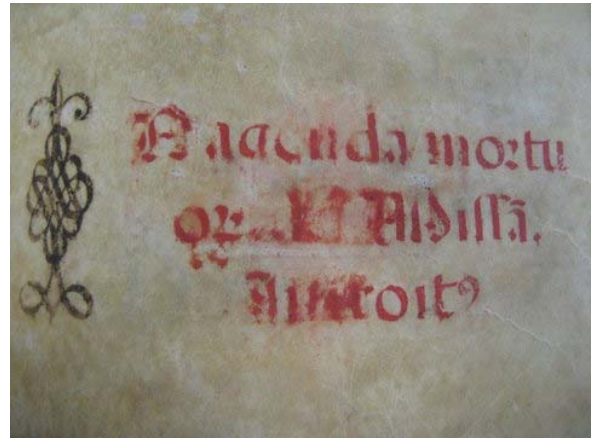 IN agenda mortu
oꝝ Missã.
Introitꝰ